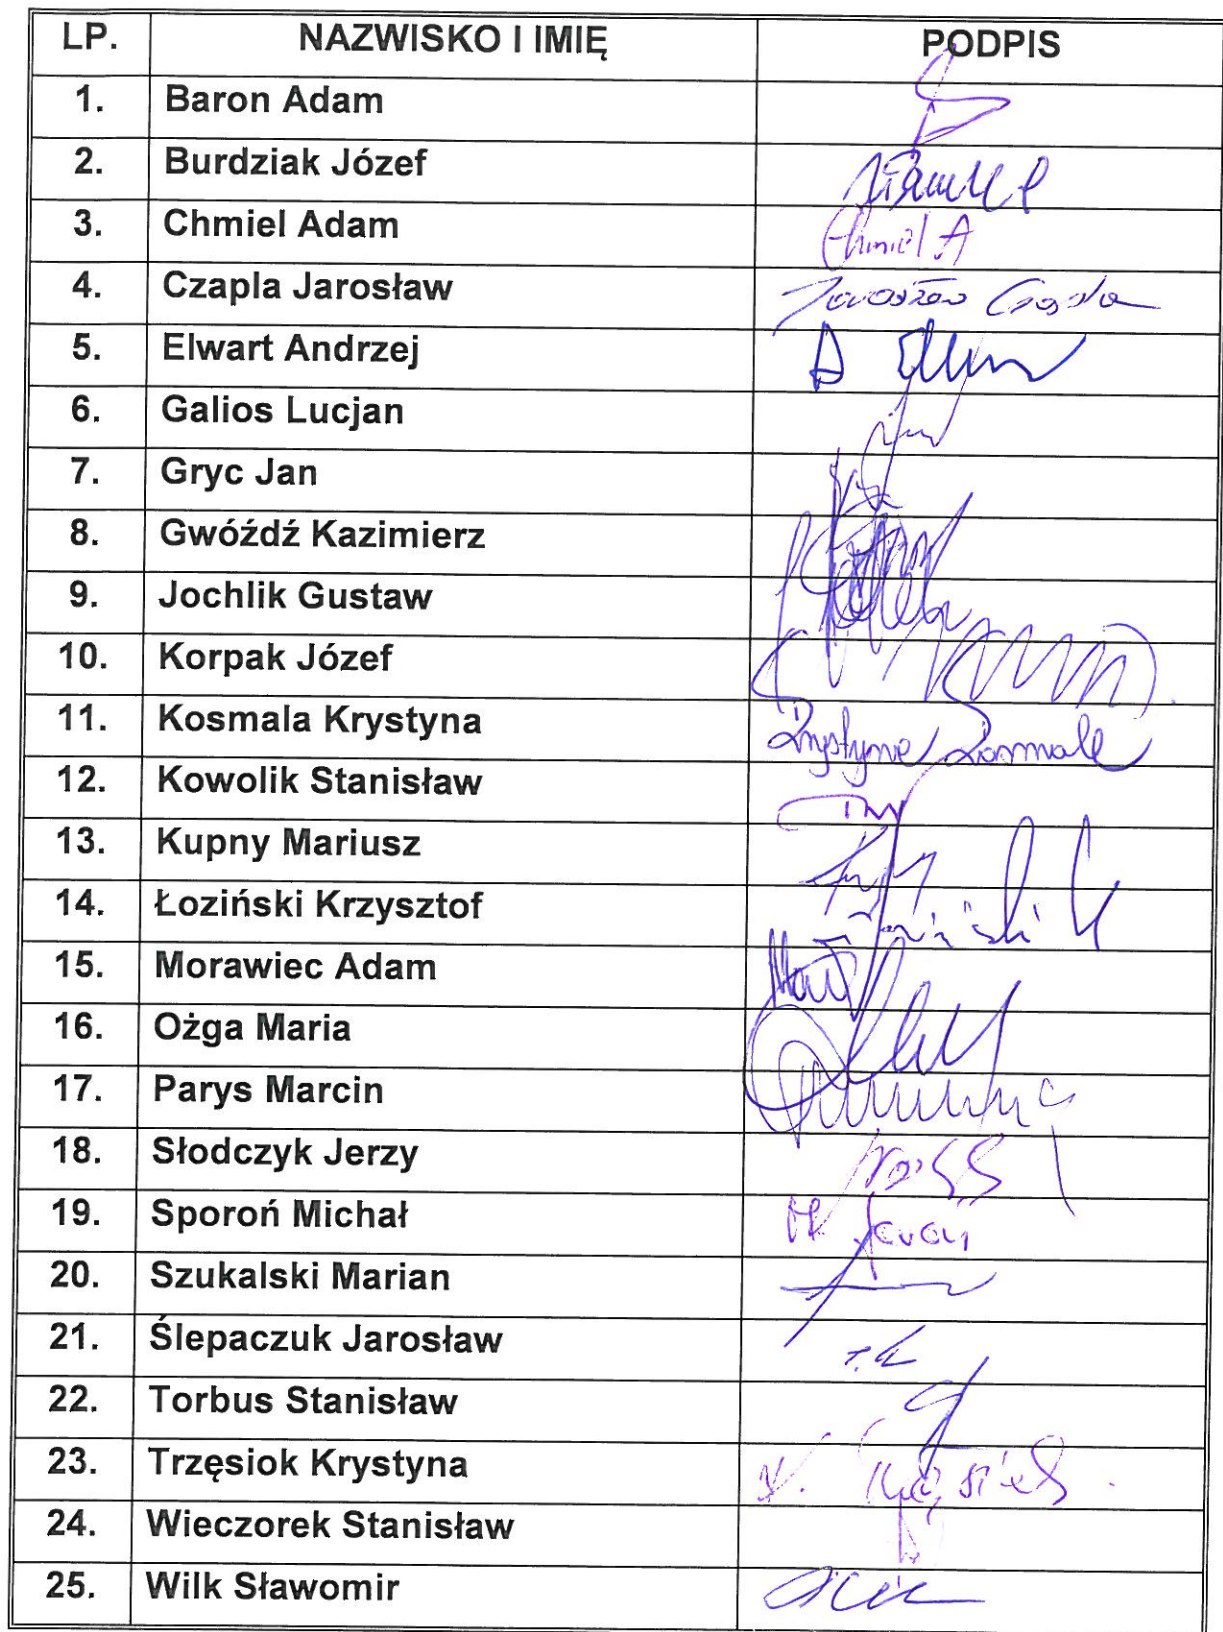 LP. NAZWISKO I IMIĘ PODPIS
1. Baron Adam
2. Burdziak Józef
3. Chmiel Adam Chmiel A
4. Czapla Jarosław Jarosław Czapla
5. Elwart Andrzej A
6. Galios Lucjan
7. Gryc Jan
8. Gwóźdź Kazimierz
9. Jochlik Gustaw
10. Korpak Józef
11. Kosmala Krystyna Krystyna Kosmala
12. Kowolik Stanisław
13. Kupny Mariusz
14. Łoziński Krzysztof
15. Morawiec Adam
16. Ożga Maria
17. Parys Marcin
18. Słodczyk Jerzy
19. Sporoń Michał
20. Szukalski Marian
21. Ślepaczuk Jarosław
22. Torbus Stanisław
23. Trzęsiok Krystyna
24. Wieczorek Stanisław
25. Wilk Sławomir